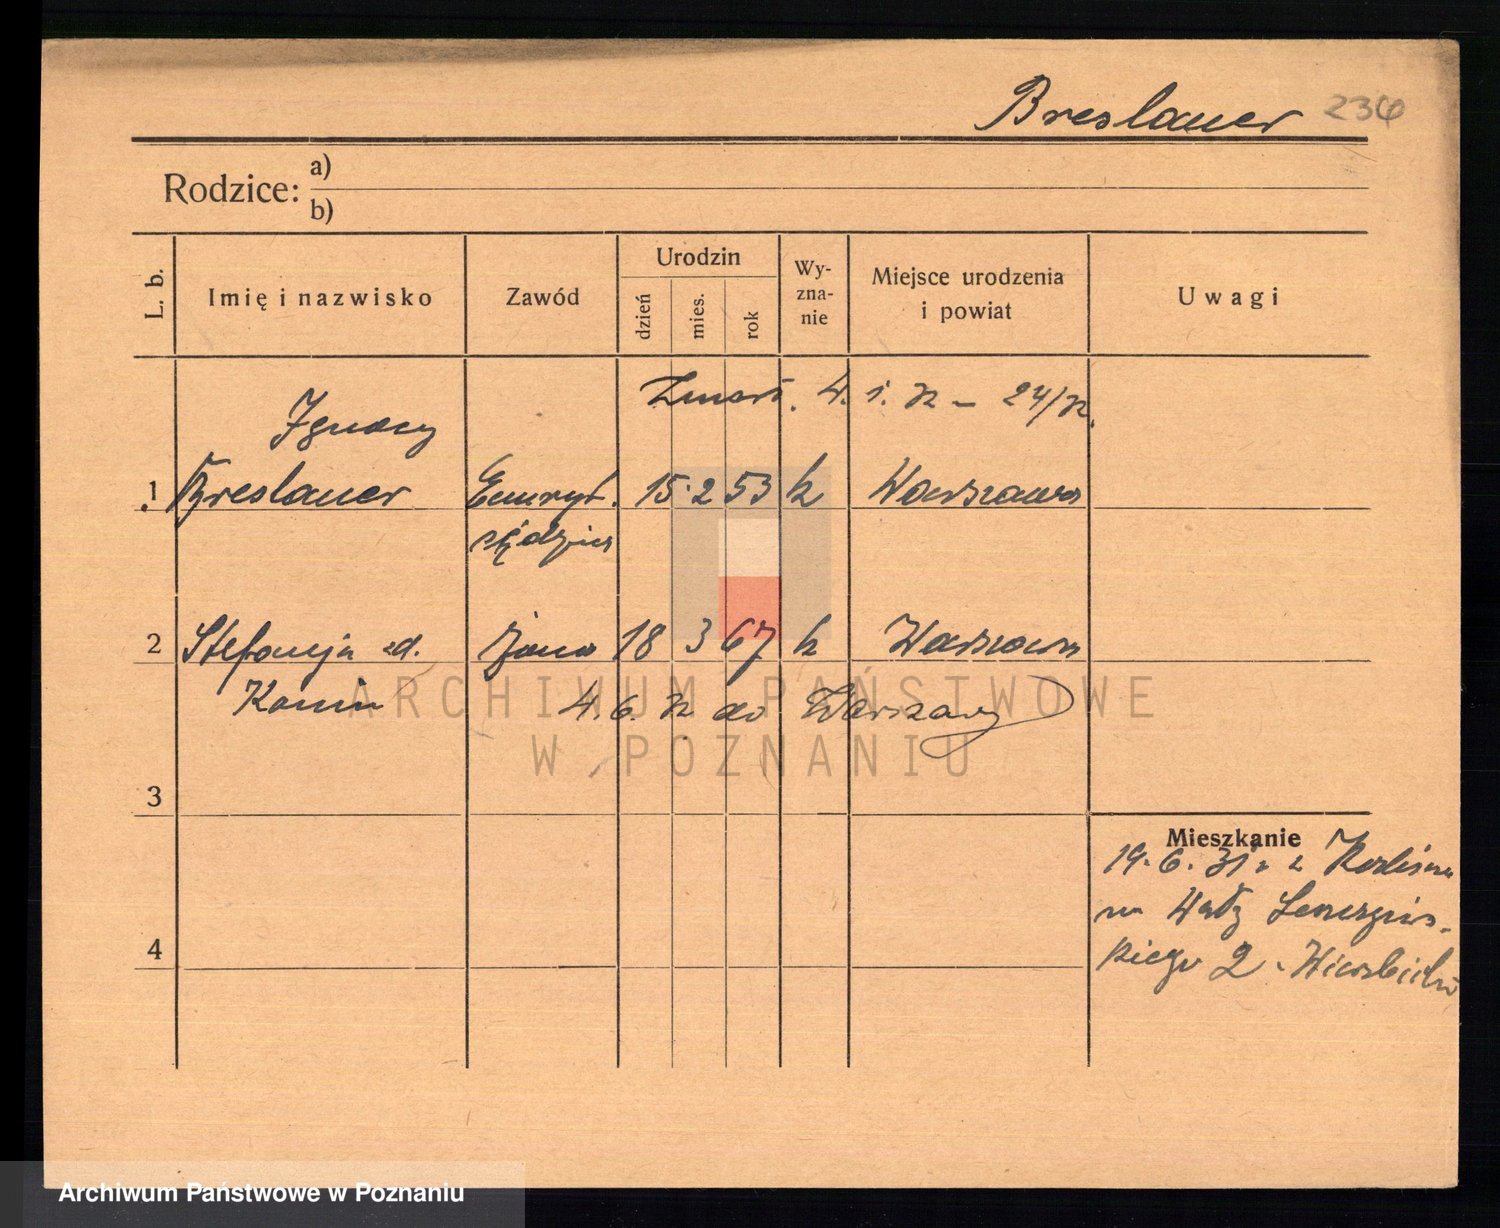 Breslauer 234
Rodzice: a)
b)
L. b.
Imię i nazwisko
Zawód
Urodzin
dzień
mies.
rok
Wy-
zna-
nie
Miejsce urodzenia
i powiat
Uwagi
Zmarł. 4. 1. 32 – 24/32.
Ignacy
1 Breslauer Emeryt. 15. 2 53 k Warszawa
sędzia
2 Stefanija zd. żona 18 3 67 k Warszawa
Kamin 4. 6. 32 do Warszawy
3
Mieszkanie
19. 6. 31. z
na Wały
kiego 2
4
ARCHIWUM PAŃSTWOWE
W POZNANIU
Archiwum Państwowe w Poznaniu